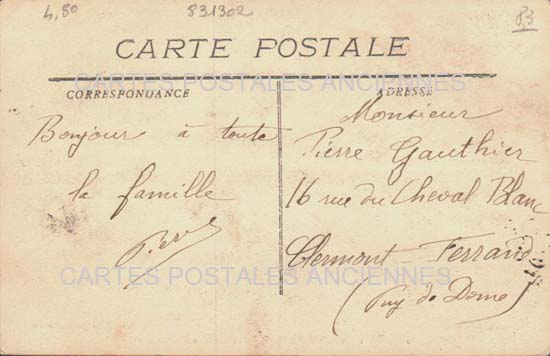 4,80
831302
83
CARTE POSTALE
CARTES POSTALES ANCIENNES
CORRESPONDANCE
ADRESSE
Bonjour à toute
la famille
Monsieur
Pierre Gauthier
16 rue du Cheval Blanc
Clermont-Ferrand
(Puy de Dome)
CARTES POSTALES ANCIENNES